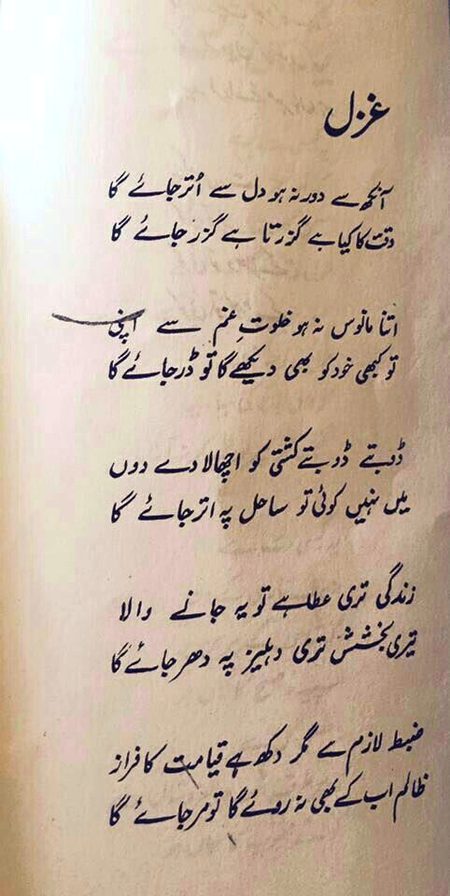 غزل
آنکھ سے دور نہ ہو دل سے اُتر جائے گا
وقت کا کیا ہے گزرتا ہے گزر جائے گا
اتنا مانوس نہ ہو خلوتِ غم سے اپنی
تو کبھی خود کو بھی دیکھے گا تو ڈر جائے گا
ڈوبتے ڈوبتے کشتی کو اچھالا دے دوں
میں نہیں کوئی تو ساحل پہ اتر جائے گا
زندگی تری عطا ہے تو یہ جانے والا
تیری بخشش تری دہلیز پہ دھر جائے گا
ضبط لازم ہے مگر دکھ ہے قیامت کا فراز
ظالم اب کے بھی نہ روئے گا تو مر جائے گا